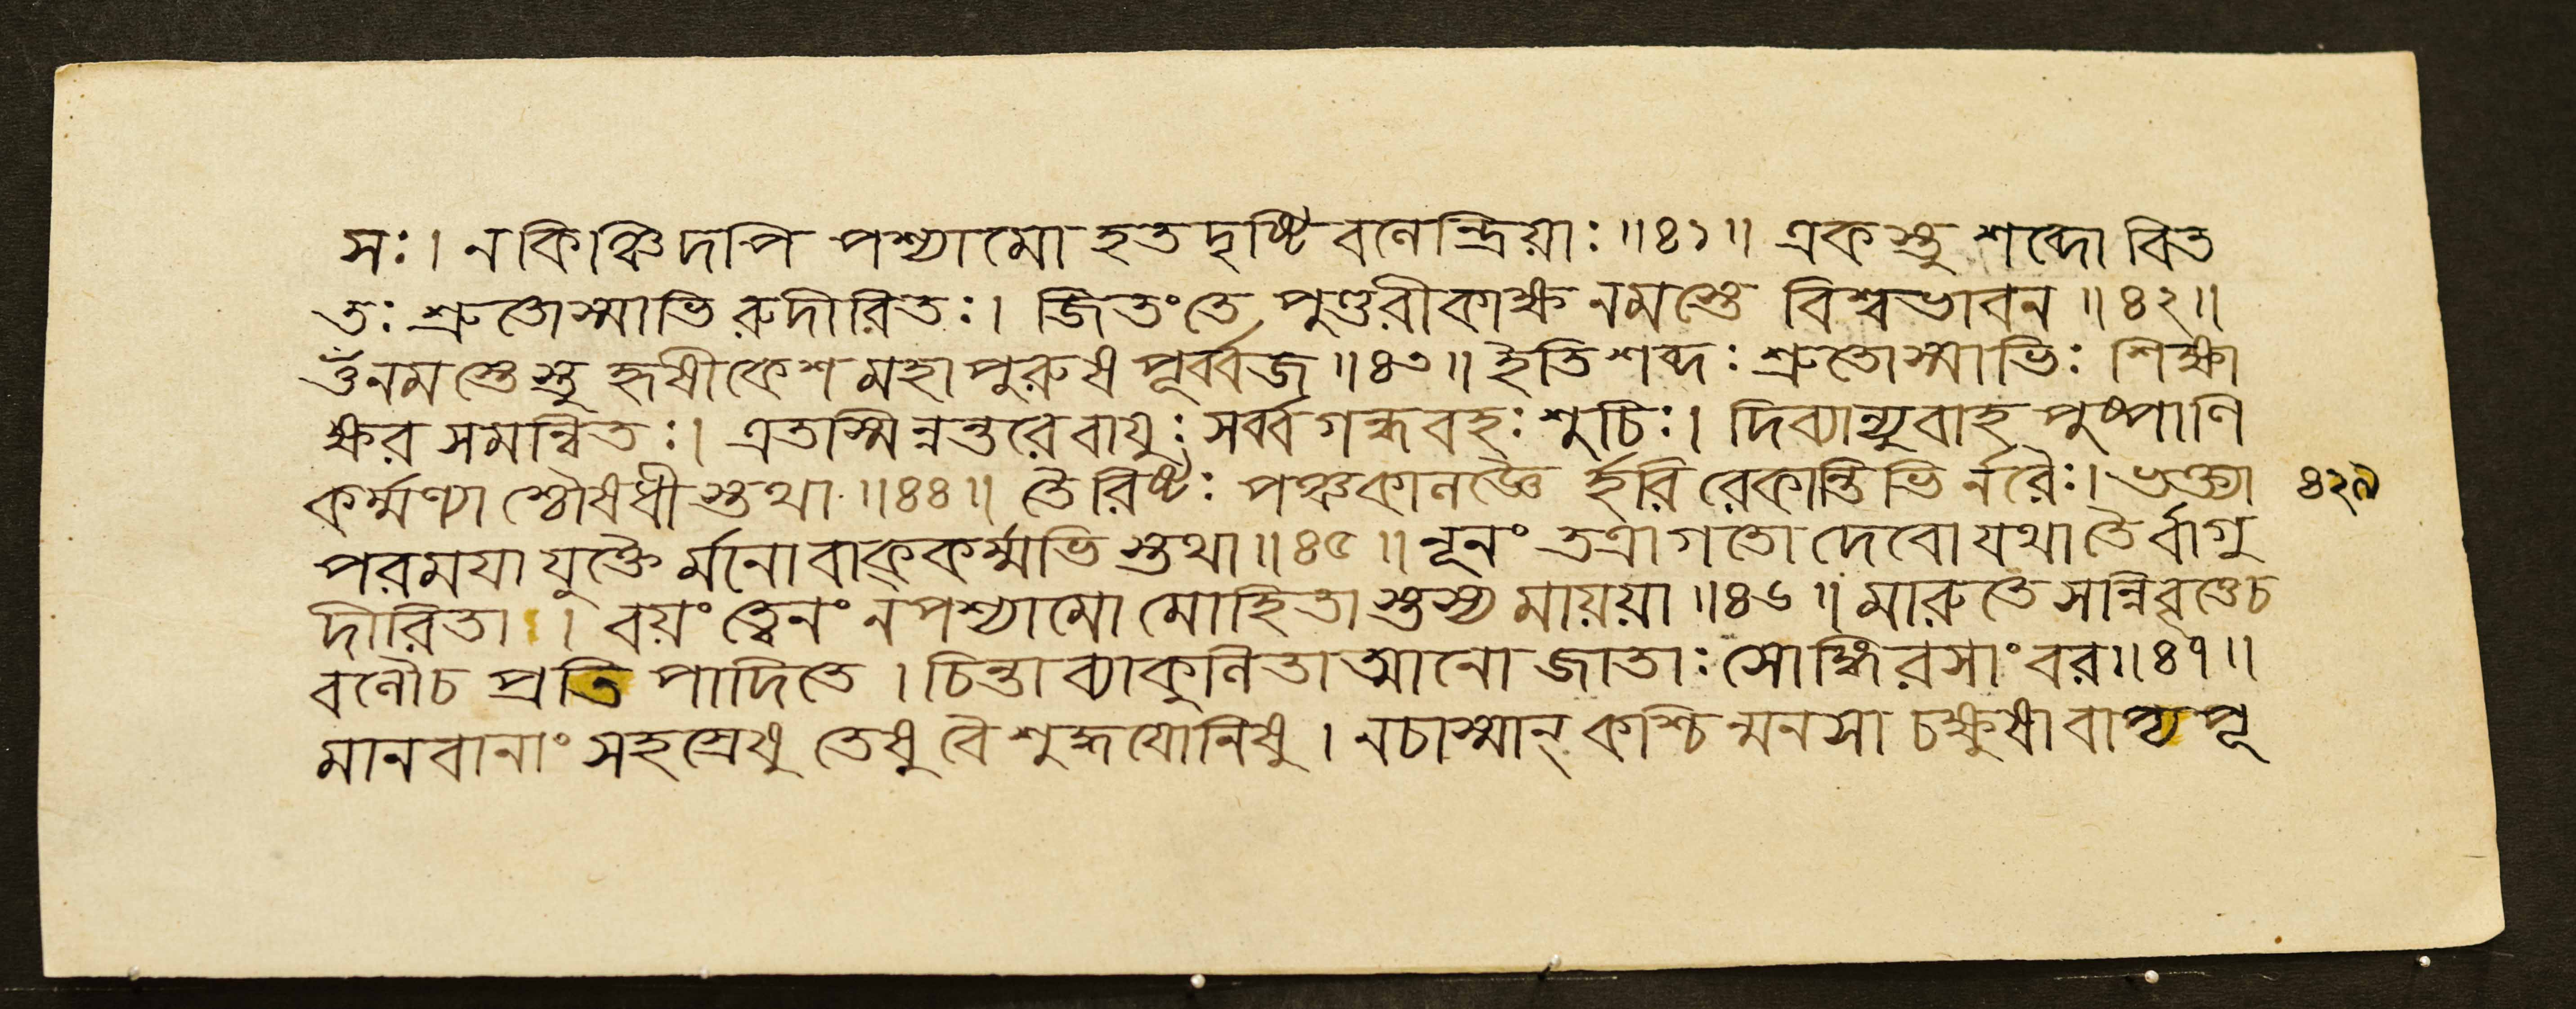 সঃ। ন কিঞ্চিদপি পশ্যামো হতদৃষ্টিবলেন্দ্রিয়াঃ॥৪১॥ একস্তু শব্দো বিত
তঃ শ্রুতোস্মাভিরুদীরিতঃ। জিতং তে পুণ্ডরীকাক্ষ নমস্তে বিশ্বভাবন॥৪২॥
ওঁ নমস্তেস্তু হৃষীকেশ মহাপুরুষ পূর্ব্বজ॥৪৩॥ ইতি শব্দঃ শ্রুতোস্মাভিঃ শিক্ষা
ক্ষর সমন্বিতঃ। এতস্মিন্নন্তরে বায়ুঃ সর্ব্বগন্ধবহঃ শুচিঃ। দিব্যান্যুবাহ পুষ্পাণি
কর্ম্মণ্যাশ্চৌষধীস্তথা॥৪৪॥ তৈরিষ্টঃ পঞ্চকালজ্ঞৈর্হরিরেকান্তিভির্নরৈঃ। ভক্ত্যা ৪২৯
পরময়া যুক্তৈর্মনোবাক্কর্ম্মভিস্তথা॥৪৫॥ নূনং তত্রাগতো দেবো যথা তৈর্বাগু
দীরিতা। বয়ং ত্বেনং ন পশ্যামো মোহিতাস্তস্য মায়য়া॥৪৬॥ মারুতে সন্নিবৃত্তে চ
বলৌ চ প্রতিপাদিতে। চিন্তাব্যাকুলিতাত্মানো জাতাঃ স্মোঙ্গিরসাং বর॥৪৭॥
মানবানাং সহস্রেষু তেষু বৈ শুদ্ধযোনিষু। ন চাস্মান্ কশ্চিন্মনসা চক্ষুষা বাপ্যপূ